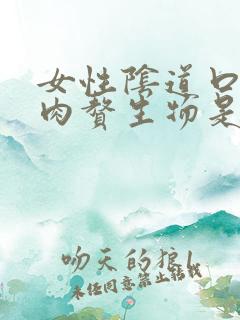 女性陰道口
肉贅生物是
吻天的狼1
未经同意禁止转载